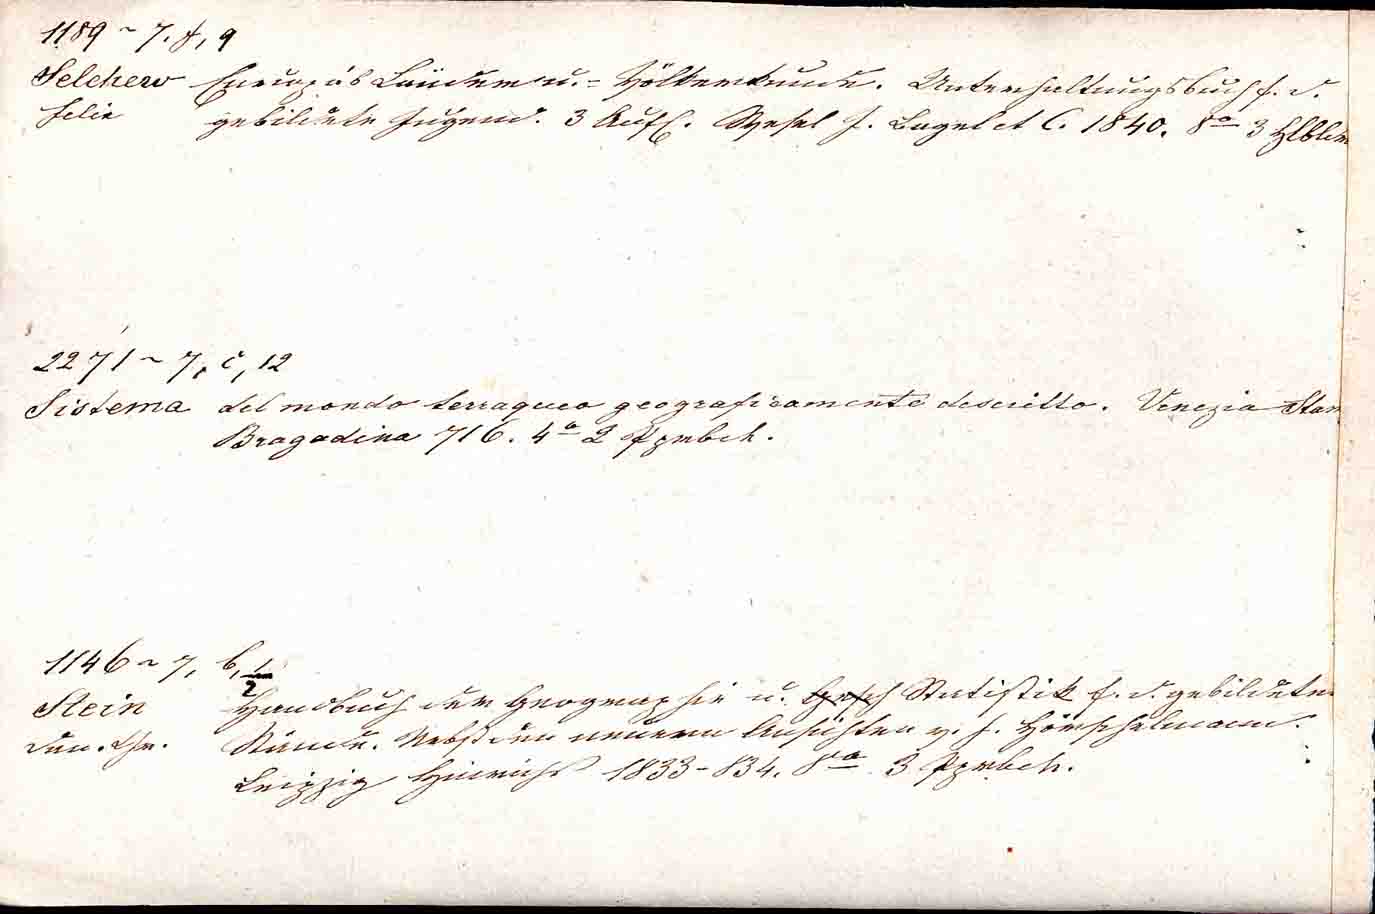 1189 ~ 7. f, 9
Selchow Europas Länder u. = Völkerkunde. Unterhaltungsbuch f. d.
Felix gebildete Jugend. 3 Aufl. Wesel J. Bagel et C. 1840. 8º 3 Hlbl
2271 ~ 7, c, 12
Sistema del mondo terraqueo geograficamente descritto. Venezia Stam
Bragadina 716. 4º 2 Pprbch.
1146 ~ 7, b, 1/2
Stein Handbuch der Geographie u. Statistik f. d. gebildeten
Stände. Nebst den neuern Ansichten v. F. Hörschelmann.
Leipzig Hinrichs 1833-834. 8º 3 Pprbch.